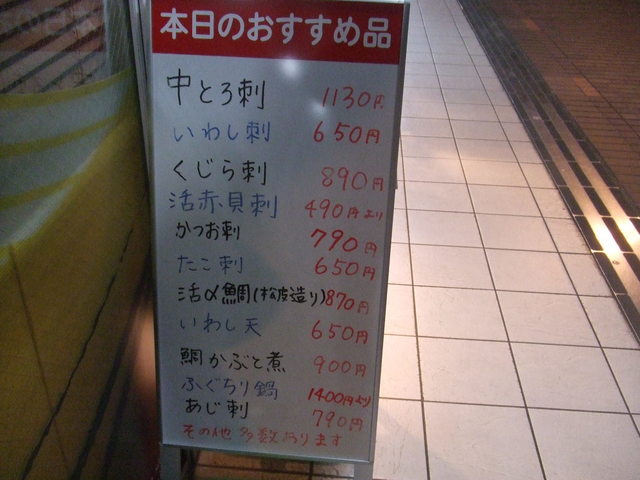 本日のおすすめ品
中とろ刺 1130円
いわし刺 650円
くじら刺 890円
活赤貝刺 490円より
かつお刺 790円
たこ刺 650円
活〆鯛(松皮造り) 870円
いわし天 650円
鯛かぶと煮 900円
ふぐちり鍋 1400円より
あじ刺 790円
その他多数あります